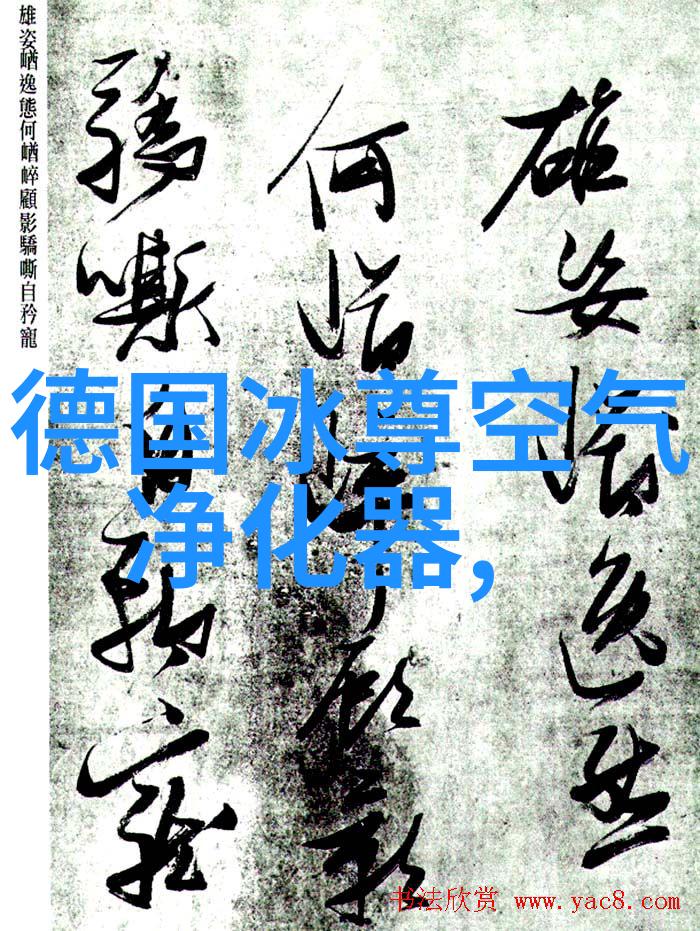 雄姿崷逸態
何崷崪顧影
驕嘶自矜寵
雄姿崷逸態何崷崪顧影驕嘶自矜寵
德国冰尊空气
净化器,
书法欣赏 www.yac8.com